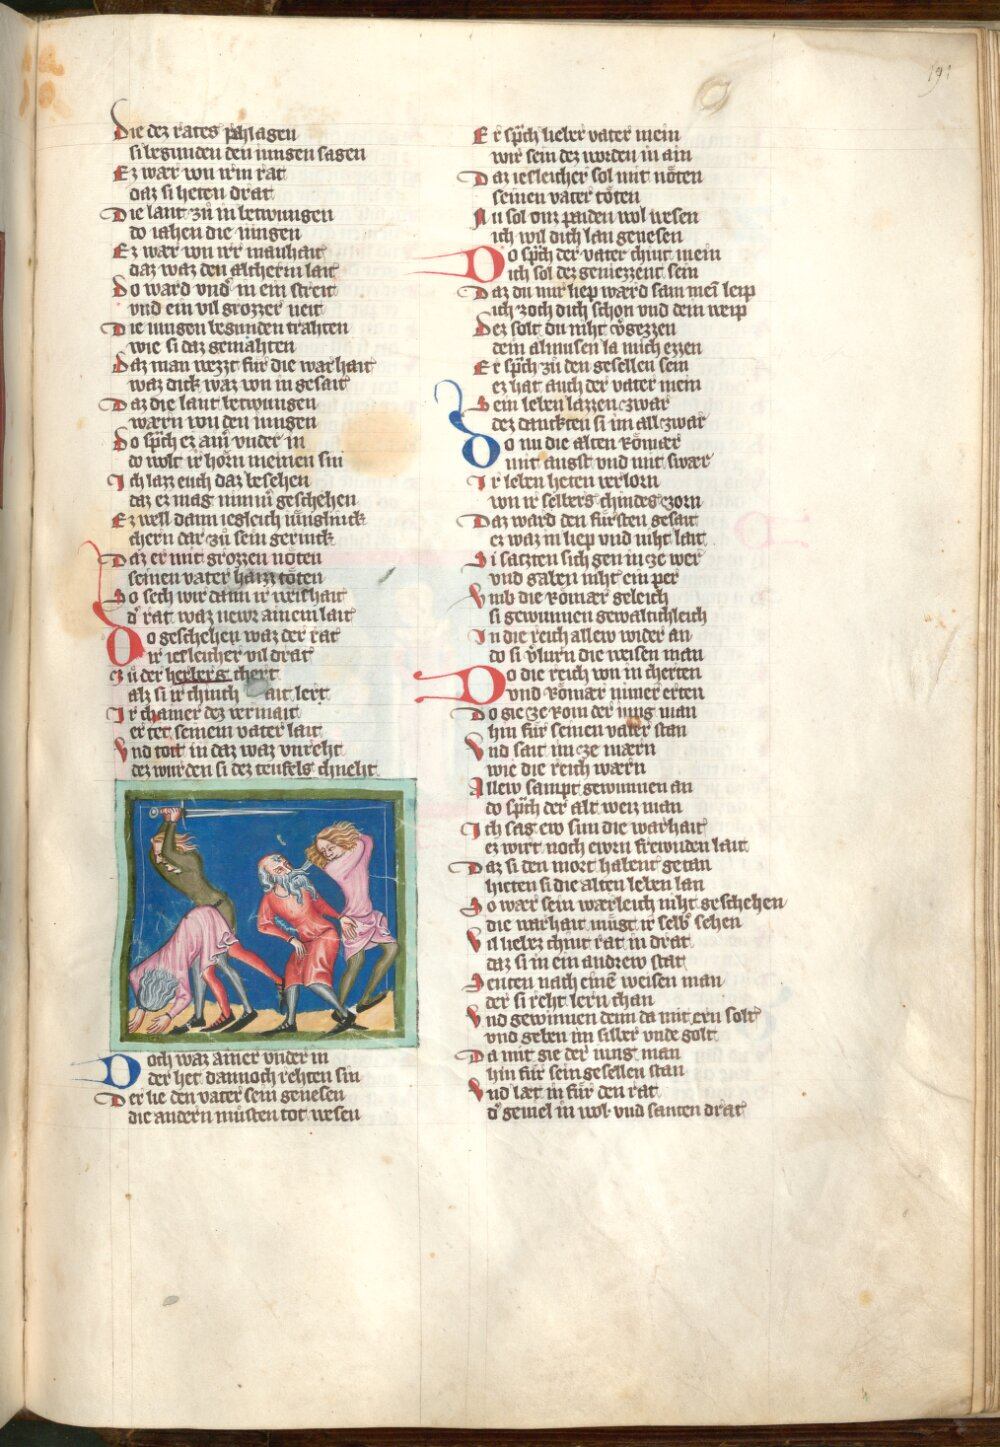 191
Die dez rates phlagen
si begunden den iungen sagen
Ez wær von irm rat
daz si heten drat
Die laut zů in betwungen
do iahen die iungen
Ez wær von irr manhait
daz waz den altherrn lait
Do ward vnd in ein streit
vnd ein vil grozzer neit
Die iungen begunden trahten
wie si daz gemahten
Daz man wezzt für die warhait
waz dick waz von in gesait
Daz die laut betwungen
wærn von den iungen
Do sp̄ch ez ain vnder in
do wolt ir hörn meinen sin
Ich lazz euch daz besehen
daz ez mag geschehen
Ez well dann iegleich iünglinck
chern dar zů sein gerinck
Daz er mit grozzen nöten
seinen vater haizz töten
So sech wir dann ir weishait
d rat waz newr ainem lait
Do geschehen waz der rat
ir iesleicher vil drat
zů der herberg chert
alz si ir chinch ait lert
Ir chainer dez vermait
er tet seinem vater lait
Vnd tott in daz waz vnreht
dez wurden si dez teufels chneht
Doch waz ainer vnder in
der het dannoch rehten sin
Der lie den vater sein genesen
die andern můsten tot wesen
Er sp̄ch lieber vater mein
wir sein dez worden in ain
Daz iesleicher sol mit nöten
seinen vater töten
Nu sol vnz paiden wol wesen
ich wil dich lan genesen
Do sp̄ch der vater chint mein
ich sol dez geniezzent sein
Daz du mir liep wærd sam mei leip
ich zoch dich schon vnd dein weip
Dez solt du niht v̄gezzen
dein almusen la mich ezzen
Er sp̄ch zů den gesellen sein
ez hat auch der vater mein
Sein leben lazzen zwar
dez danckten si im all zwar
Do nu die alten Römær
mit angst vnd mit swær
Ir leben heten verlorn
von ir selbers chindes zorn
Daz ward den fürsten gesait
ez waz in liep vnd niht lait
Si satzten sich gen in ze wer
vnd gaben niht ein per
Vmb die Römær geleich
si gewunnen gewaltichleich
In die reich allew wider an
do si v̄lurn die weisen man
Do die reich von in cherten
vnd Römær nimer erten
Do gie ze Rom der iung man
hin für seinen vater stan
Vnd sait im ze mærn
wie die reich wærn
Allew sampt gewunnen an
do sp̄ch der alt weiz man
Ich sag ew sun die warhait
ez wirt noch ewrn frewnden lait
Daz si den mort habent getan
hieten si die alten leben lan
So wær sein wærleich niht geschehen
die warhait mügt ir selb sehen
Vil liebez chint rat in drat
daz si in ein andrew stat
Senten nach einē weisen man
der si reht lern chan
Vnd gewinnen denn da mit ern solt
vnd geben im silber vnde golt
Da mit gie der iung man
hin für sein gesellen stan
Vnd læt in für den rat
d geviel in wol vnd santen drat